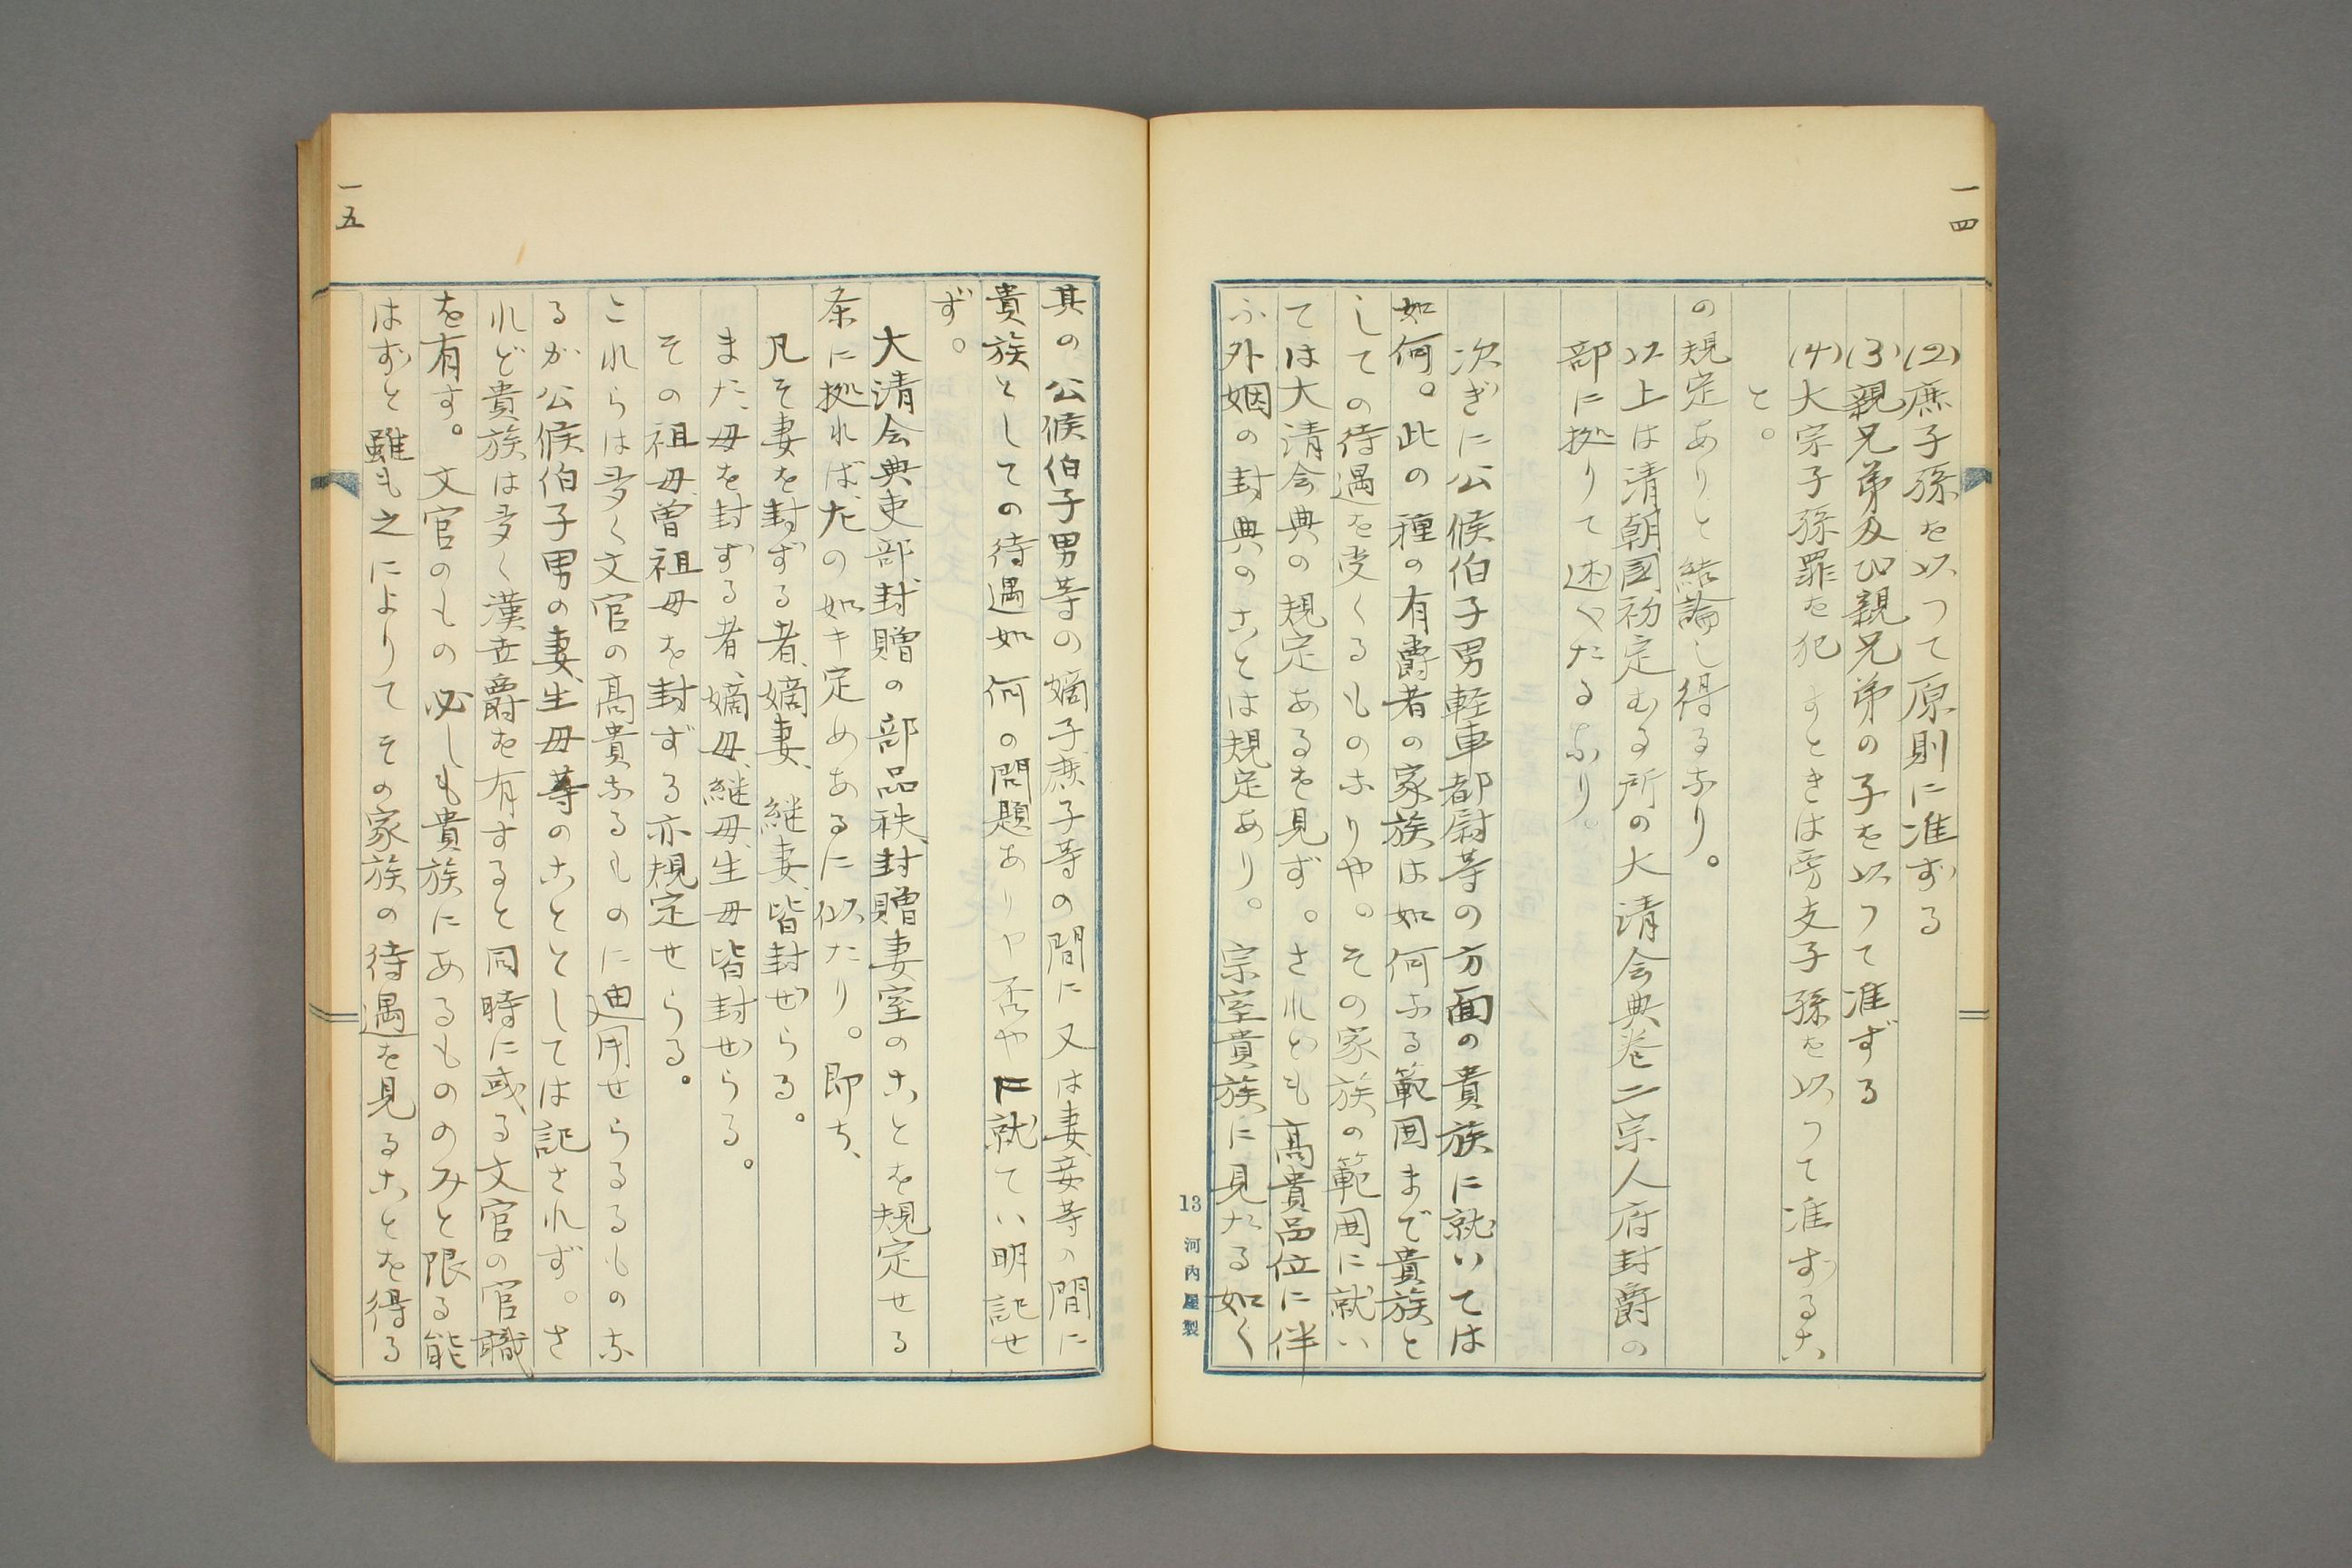 一四
(2)庶子孫を以つて原則に准ずる
(3)親兄弟及び親兄弟の子を以つて准ずる
(4)大宗子孫罪を犯すときは旁支子孫を以つて准ずるこ
と。
の規定ありと結論し得るなり。
以上は清朝國初定むる所の大清会典巻二宗人府封爵の
部に拠りて述べたるなり。
次ぎに公候伯子男軽車都尉等の方面の貴族に就いては
如何。此の種の有爵者の家族は如何なる範囲まで貴族と
しての待遇を受くるものなりや。その家族の範囲に就い
ては大清会典の規定あるを見ず。されども高貴品位に伴
ふ外姻の封典のことは規定あり。宗室貴族に見たる如く
13 河内屋製
一五
其の公候伯子男等の嫡子庶子等の間に又は妻妾等の間に
貴族としての待遇如何の問題ありや否やに就てい明記せ
ず。
大清会典吏部封贈の部品秩、封贈妻室のことを規定せる
条に拠れば左の如キ定めあるに似たり。即ち、
凡そ妻を封ずる者、嫡妻、継妻、皆封ぜらる。
また、母を封ずる者、嫡母、継母、生母皆封ぜらる。
その祖母、曽祖母を封ずる亦規定せらる。
これらは多く文官の高貴なるものに適用せらるるものな
るが公候伯子男の妻、生母等のこととしては記されず。さ
れど貴族は多く漢世爵を有すると同時に或る文官の官職
を有す。文官のもの必しも貴族にあるもののみと限る能
はずと雖も之によりてその家族の待遇を見ることを得る